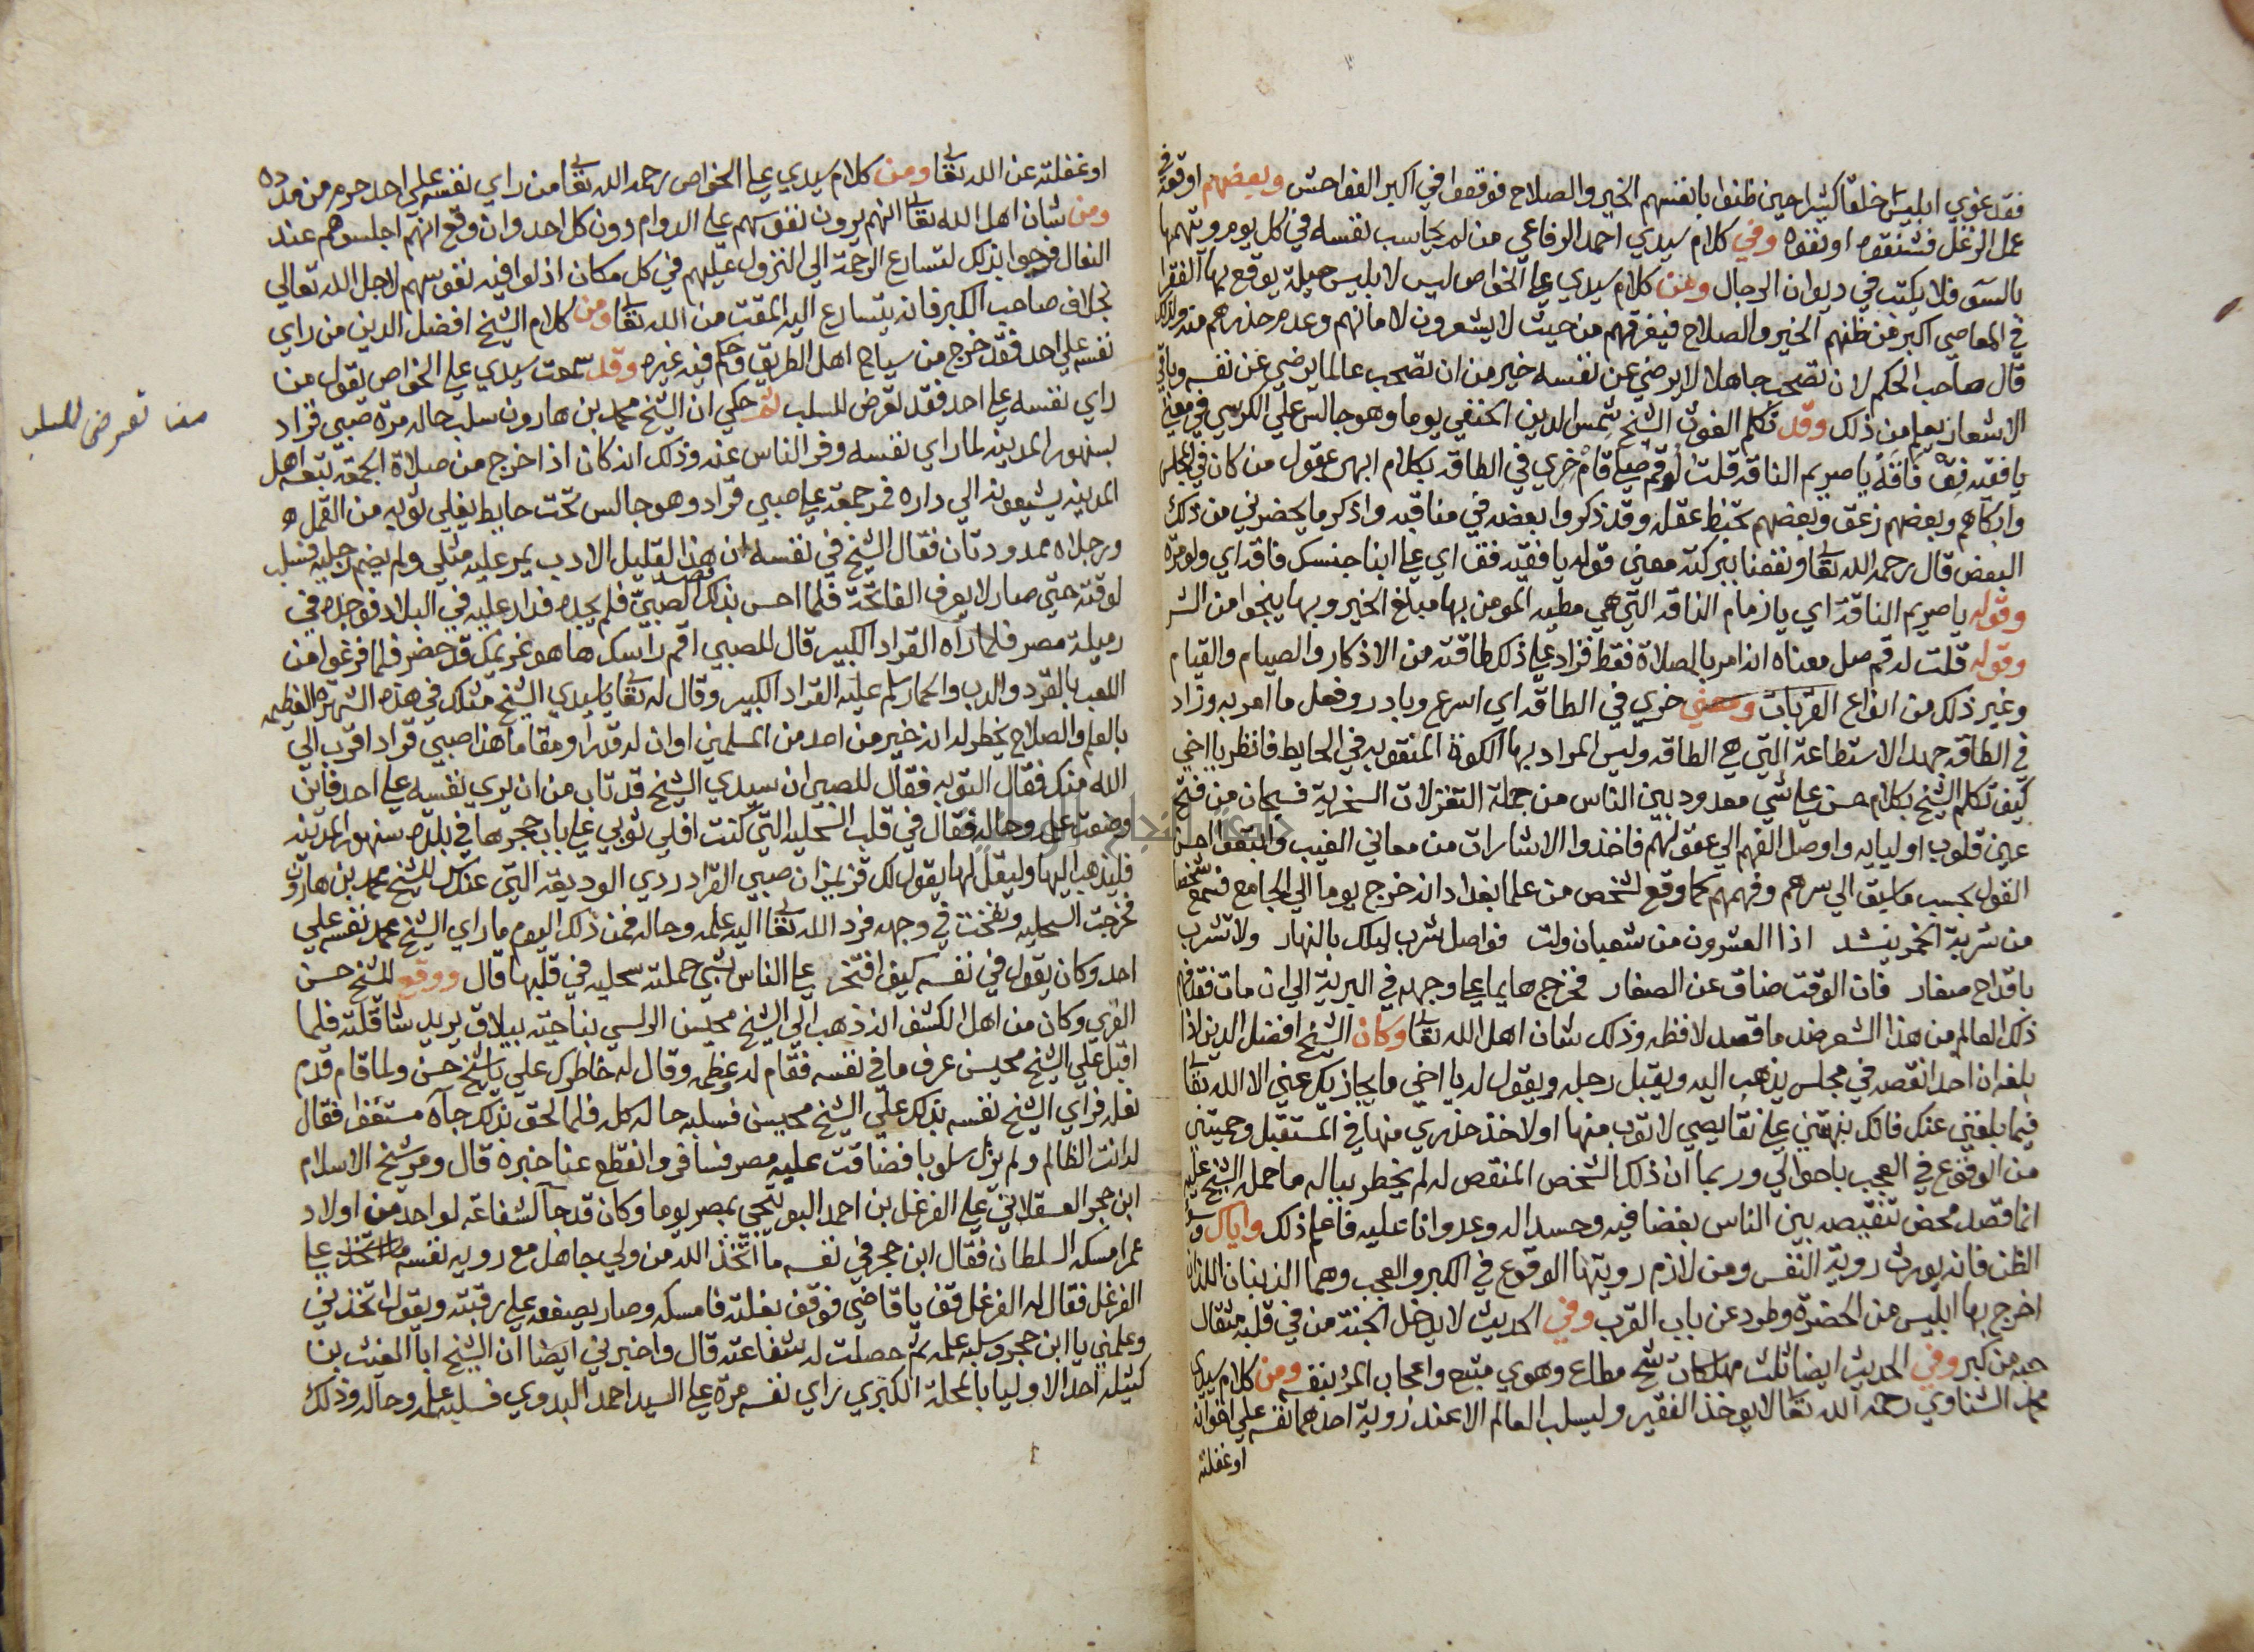 فقد غوي ابليس خلقا كثيرا حين ظنوا بانفسهم الخير والصلاح فوقعوا في اكبر الفواحش وبعضهم اوقعه في
عمل الزغل فشنقوه او نفوه وفي كلام سيدي احمد الرفاعي من لم يحاسب نفسه في كل يوم ويتهمها
بالسوء فلا يكتب في ديوان الرجال ومن كلام سيدي علي الخواص ليس لابليس حيلة يوقع بها الفقرا
في المعاصي اكبر من ظنهم الخير والصلاح فيغرقهم من حيث لا يشعرون لامانهم وعدم حذرهم منه ولذلك
قال صاحب الحكم لان تصحب جاهلا لا يرضي عن نفسه خير من ان تصحب عالما يرضي عن نفسه وياتي
الاشعار بعيا من ذلك وقد تكلم الغوث الشيخ شمس الدين الحنفي يوما وهو جالس علي الكرسي في معني
يا فقيه فق فاقة يا صريم الناقه قلت لو قم صلي قام خري في الطاقه بكلام ابهر عقول من كان في المجلس
وابكاهم وبعضهم زعق وبعضهم تخبط عقله وقد ذكروا بعضه في مناقبه واذكر ما يحضرني من ذلك
البعض قال رحمه الله تعالي ونفعنا ببركته معني قوله يا فقيه فق اي علي ابنا جنسك فاقه اي ولو مرة
وقوله يا صريم الناقة اي يا زمام الناقه التي هي مطيه المومن بها مبلغ الخير وبها ينجوا من الشر
وقوله قلت له قم صل معناه انه امر بالصلاة فقط فزاد علي ذلك طاقته من الاذكار والصيام والقيام
وغير ذلك من انواع القربات ومعني خري في الطاقه اي اسرع وبادر وفعل ما امر به وزاد
في الطاقه جهد الاستطاعة التي هي الطاقه وليس المراد بها الكوة المنقوبه في الحايط فانظر يا اخي
كيف تكلم الشيخ بكلام حسن علي شي معدود بين الناس من جملة التغزلات السخرية فسبحان من فتح
عين قلوب اوليايه واوصل الفهم الي عقولهم فاخذوا الاشارات من معاني الغيب واتبعوا احسن
القول بحسب ما سبق الي سرهم وفهمهم كما وقع لشخص من علما بغداد انه خرج يوما الي الجامع فسمع شخصا
من شربة الخمر ينشد اذا العشرون من شعبان ولت فواصل شرب ليلك بالنهار ولا تشرب
باقداح صغار فان الوقت ضاق عن الصغار فخرج هايما علي وجهه في البرية الي ان مات ففهم
ذلك العالم من هذا الشعر ضد ما قصد لافظه وذلك شان اهل الله تعالي وكان الشيخ افضل الدين اذا
بلغه ان احدا نقصه في مجلس يذهب اليه ويقبل رجله ويقول له يا اخي ما يجازيك عني الا الله تعالي
فيما بلغني عنك فانك نبهتني علي نقايصي لا توب منها او لا خذ حذري منها في المستقبل وحميتني
من الوقوع في العجب باحوالي وربما ان ذلك الشخص المنقص له لم يخطر بباله ما حمله الشيخ عليه
انما قصد محض تنقيصه بين الناس بغضا فيه وحسدا له وعدوانا عليه فاعلم ذلك واياك وسو
الظن فانه يورث روية النفس ومن لازم رويتها الوقوع في الكبر والعجب وهما الذنبان اللذان
اخرج بهما ابليس من الحضرة وطرد عن باب القرب وفي الحديث لا يدخل الجنة من في قلبه مثقال
حبه من كبر وفي الحديث ايضا ثلث مهلكات شح مطاع وهوي متبع واعجاب المرء بنفسه ومن كلام سيدي
محمد الشناوي رحمه الله تعالي لا يوخذ الفقير وليسلب العالم الا عند روية احدهما نفسه علي اخوانه
او غفلته
او غفلته عن الله تعالي ومن كلام سيدي علي الخواص رحمه الله تعالي من راي نفسه علي احد حرم من مدده
ومن شان اهل الله تعالي انهم يرون نفوسهم علي الدوام دون كل احد وان وقع انهم اجلسوهم عند
النعال فرحوا بذلك لتسارع الرحمة الي النزول عليهم في كل مكان اذلوا فيه نفوسهم لاجل الله تعالي
بخلاف صاحب الكبر فانه يتسارع اليه المقت من الله تعالي ومن كلام الشيخ افضل الدين من راي
نفسه علي احد فقد خرج من سياج اهل الطريق وحكم فيه غيره وقد سمعت سيدي علي الخواص يقول من
راي نفسه علي احد فقد تعرض للسلب ثم حكي ان الشيخ محمد بن هارون سلب حاله مرة صبي قراد
بسنهور المدينه لما راي نفسه وفر الناس عنه وذلك انه كان اذا خرج من صلاة الجمعة تتبعه اهل
المدينه يشيعونه الي داره فمر جمعة علي صبي قراد وهو جالس تحت حايط يفلي ثوبه من القمل
ورجلاه ممدودتان فقال الشيخ في نفسه ان هذا لقليل الادب يمر عليه مثلي ولم يضم رجليه فسلب
لوقته حتي صار لا يعرف الفاتحة فلما احس بذلك قصد الصبي فلم يجده فدار عليه في البلاد فوجده في
رميلة مصر فلما راه القراد الكبير قال للصبي اقم راسك ها هو غريمك قد حضر فلما فرغوا من
اللعب بالقرد والدب والحمار سلم عليه القراد الكبير وقال له تعالي يا سيدي الشيخ مثلك في هذه الشهرة العظيمه
بالعلم والصلاح يخطر له انه خير من احد من المسلمين او ان له قدرا ومقاما هذا صبي قراد اقرب الي
الله منك فقال التوبه فقال للصبي ان سيدي الشيخ قد تاب من ان يري نفسه علي احد فاين
وضعت علمه وحاله فقال في قلب السحليه التي كنت افلي ثوبي علي باب جحرها في بلده سنهور المدينه
فليذهب اليها وليقل لها يقول لك قزيزان صبي القراد ردي الوديعه التي عندك للشيخ محمد بن هارون
فخرجت السحليه ونفخت في وجهه فرد الله تعالي اليه علمه وحاله فمن ذلك اليوم ما راي الشيخ محمد نفسه علي
احد وكان يقول في نفسه كيف افتخر علي الناس بشي حملته سحليه في قلبها قال ووقع للشيخ حسن
القري وكان من اهل الكشف انه ذهب الي الشيخ محيسن البرلسي بناحيته ببولاق يريد مثاقلته فلما
اقبل علي الشيخ محيسن عرف ما في نفسه فقام له وعظمه وقال له خاطرك علي يا شيخ حسن ولما قام قدم
نعله فراي الشيخ نفسه بذلك علي الشيخ محيسن فسلبه حاله كله فلما لحق بذلك جاه مستغفرا فقال
له انت الظالم ولم يزل سلوبا فضاقت عليه مصر فسافر وانقطع عنا خبره قال ومر شيخ الاسلام
ابن حجر العسقلاني علي الفرغل بن احمد البوتيجي بمصر يوما وكان قد جا لشفاعة لواحد من اولاد
عمر امسكه السلطان فقال ابن حجر في نفسه ما اتخذ الله من ولي جاهل مع رويه نفسه علي
الفرغل فقال له الفرغل قف يا قاضي فوقف بغلته فامسكه وصار يصفعه علي رقبته ويقول اتخذني
وعلمني يا ابن حجر وسلبه علمه ثم حصلت له شفاعته قال واخبرني ايضا ان الشيخ ابا الغيث بن
كتيلة احد الاوليا بالمحلة الكبري راي نفسه مرة علي السيد احمد البدوي فسلبه علمه وحاله وذلك
تعرض للسلب